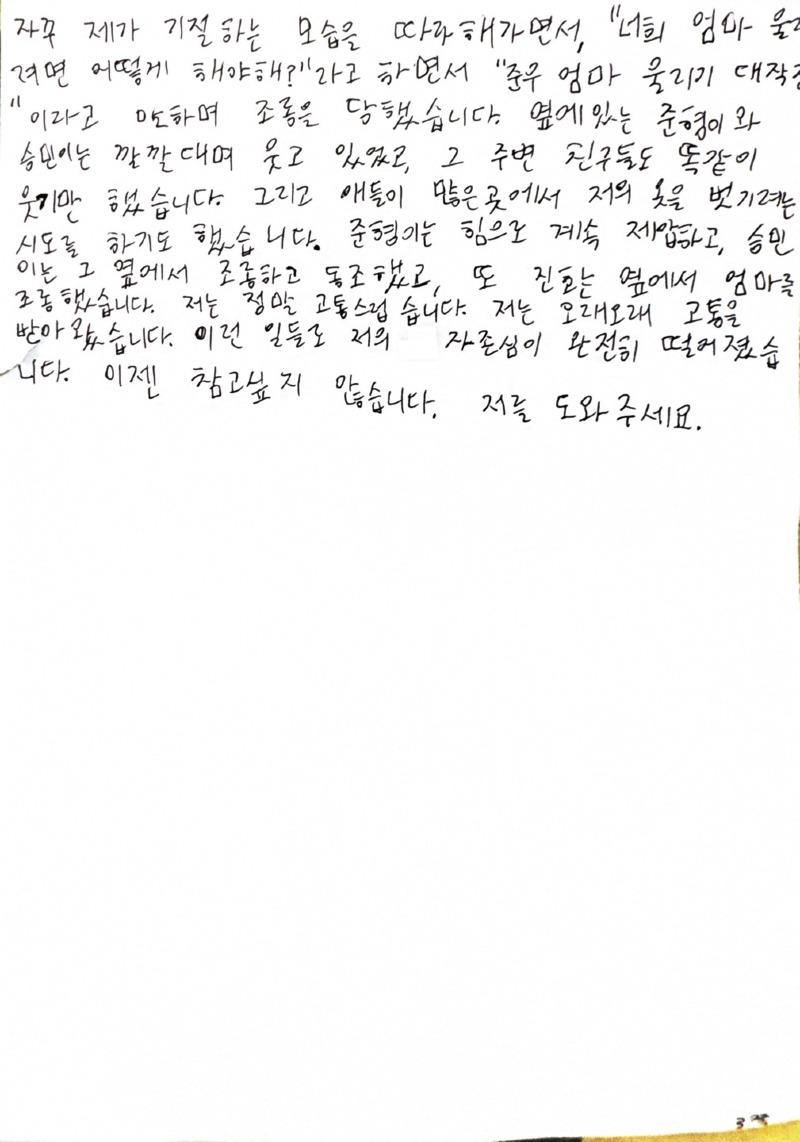 자꾸 제가 기절하는 모습을 따라해가면서, "너희 엄마 울
려면 어떻게 해야해?"라고 하면서 "준우 엄마 울리기 대작
"이라고 말하며 조롱을 당했습니다. 옆에있는 준형이와
승민이는 깔깔대며 웃고 있었고, 그 주변 친구들도 똑같이
웃기만 했습니다. 그리고 애들이 많은곳에서 저의 옷을 벗기려는
시도를 하기도 했습니다. 준형이는 힘으로 계속 제압하고, 승민
이는 그 옆에서 조롱하고 동조했고, 또 진호는 옆에서 엄마를
조롱했습니다. 저는 정말 고통스럽습니다. 저는 오래오래 고통을
받아왔습니다. 이런 일들로 저의 자존심이 완전히 떨어졌습
니다. 이젠 참고싶지 않습니다. 저를 도와주세요.